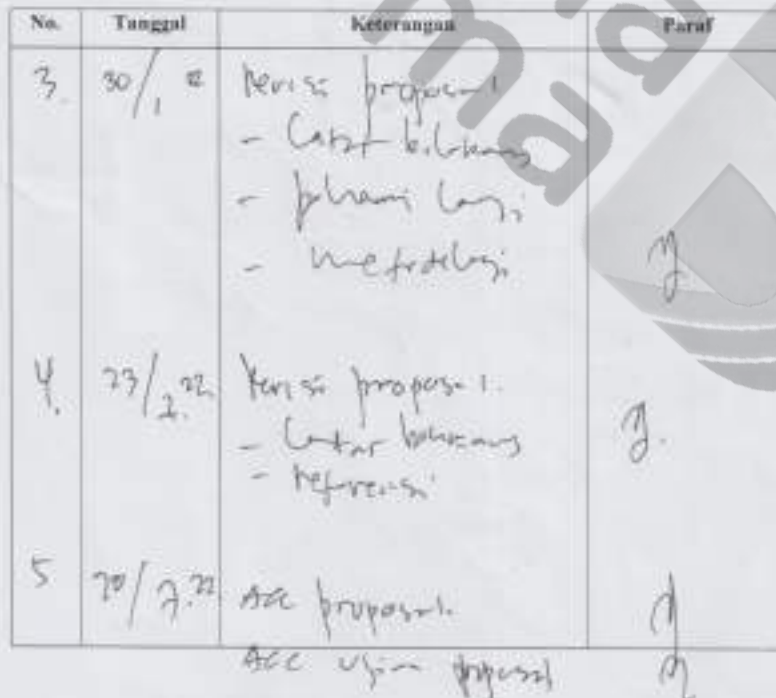 No. Tanggal Keterangan Paraf
3. 30/1 22 Revisi proposal
- Latar belakang
- pahami lagi
- metodologi
4. 23/2.22 Revisi proposal.
- Latar belakang
- referensi
5 ACC proposal.
ACC ujian proposal